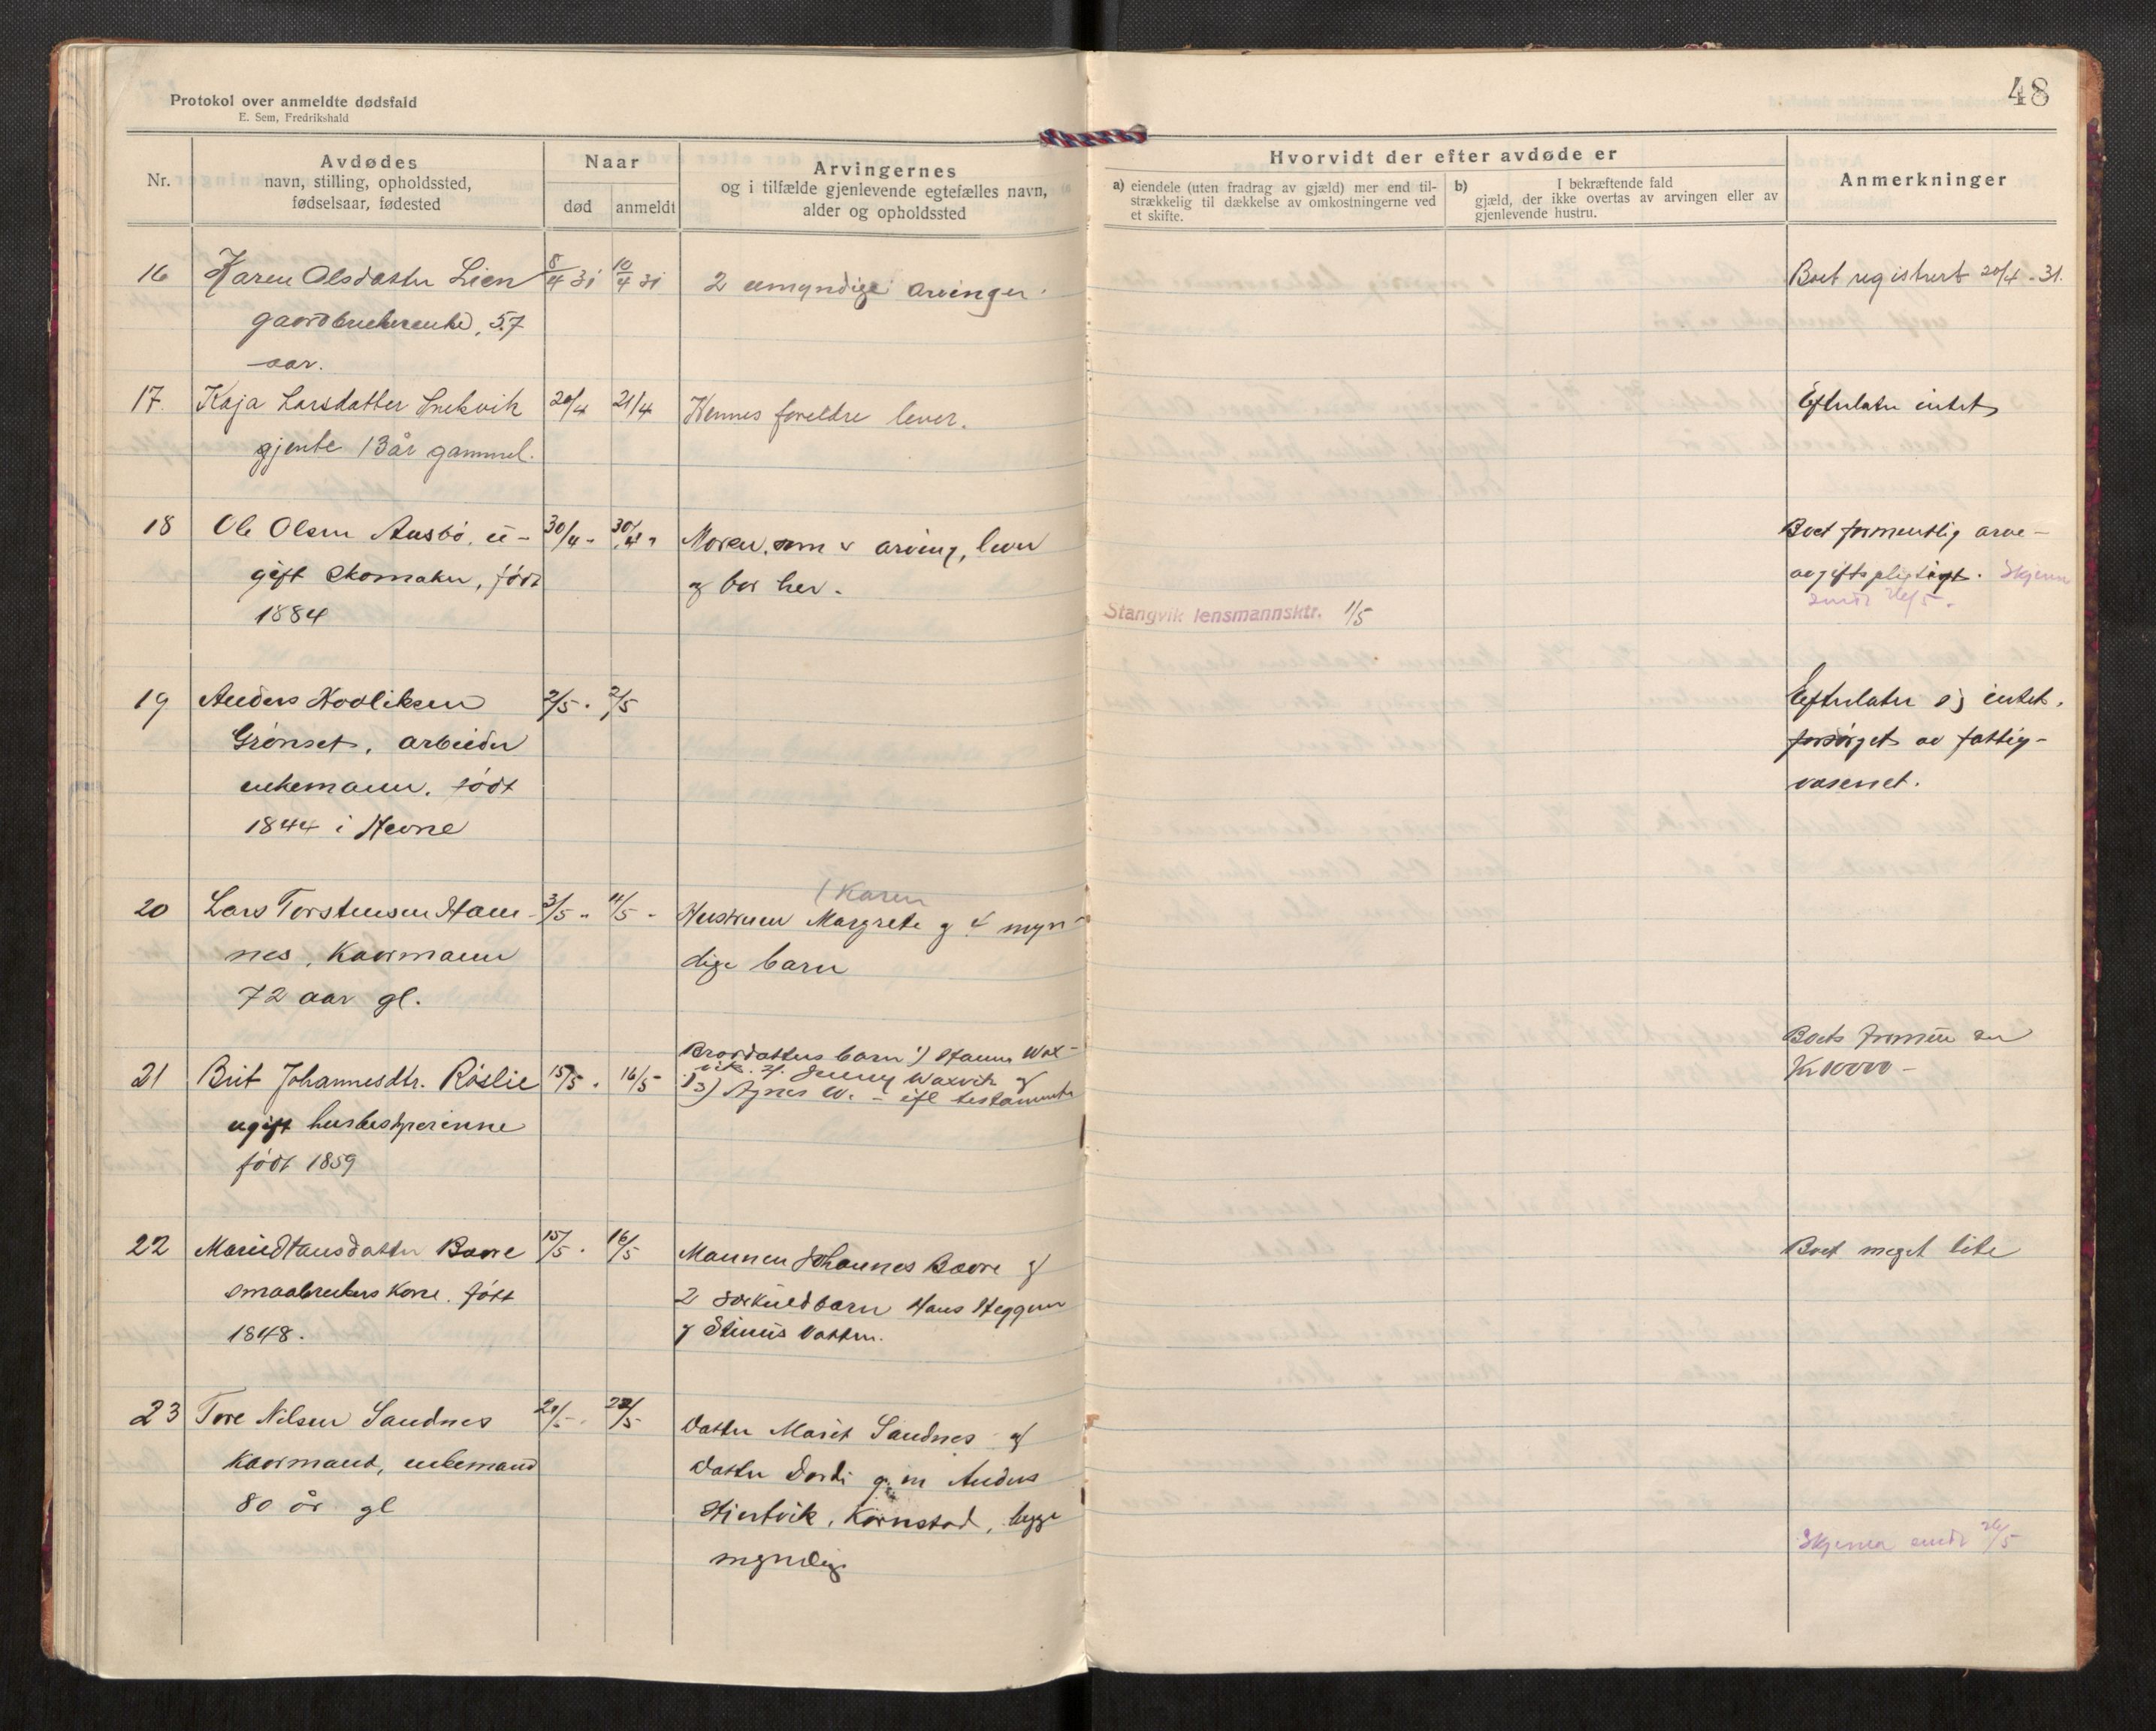 48
Protokol over anmeldte dødsfald
E. Sem, Fredrikshald
Nr.
Avdødes
navn, stilling, opholdssted,
fødselsaar, fødested
Naar
død
anmeldt
Arvingernes
og i tilfælde gjenlevende egtefælles navn,
alder og opholdssted
Hvorvidt der efter avdøde er
a) eiendele (uten fradrag av gjæld) mer end til-
strækkelig til dækkelse av omkostningerne ved
et skifte.
b) I bekræftende fald
gjæld, der ikke overtas av arvingen eller av
gjenlevende hustru.
Anmerkninger
16 Karen Olsdatter Lien 8/4 31 10/4 31 2 umyndige arvinger. Boet registrert 20/4 - 31.
gaardbrukerenke, 57
aar.
17. Kaja Larsdatter Snekvik 20/4 21/4 Hennes foreldre lever. Efterlater intet
gjente 13 år gammel.
18 Ole Olsen Aasbø, u- 30/4 - 30/4 " Moren, som er arving, lever Boet formentlig arve-
gift skomaker, født og bor her. avgiftspligtigt. Skjema
1884 Stangvik lensmannsktr. 1/5 sendt 26/5.
19 Anders 2/5 . 2/5 Efterlater sig intet,
Grønset, arbeider forsørget av fattig-
enkemann, født vesenet.
1844 i Hevne
/ Karen
20 Lars Torstensen Ham- 3/5 " 11/5 - Hustruen Margrete og 4 myn-
nes, Kaarmann dige barn
72 aar gl.
21 Brit Johannesdtr. Røslie 15/5 . 16/5 - Brordatters barn 1) Hanna Wax-
vik. 2). Jenny Waxvik og
3) Agnes W. - ifl testamente
Boets formue er
Kr 10000 -
ugift husbestyrerinne
født 1859
22 Marit Hansdatter Bævre 15/5 . 16/5 Mannen Johannes Bævre og Boet meget lite
smaabrukers kone. født 2 særkuldbarn Hans Heggem
1848. og datter.
23 Tore Nilsen Sandnes 21/5 - . 22/5 Datter Marit Sandnes og
Kaarmand, enkemand Datter Dordi g. m Anders
80 år gl , Kornstad, begge
myndig Skjema sendt 26/5